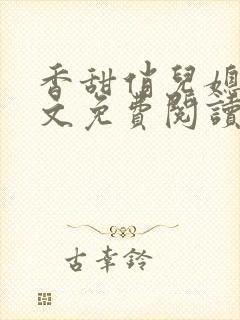 香甜俏兒媳
文免費閱讀
古幸鈴